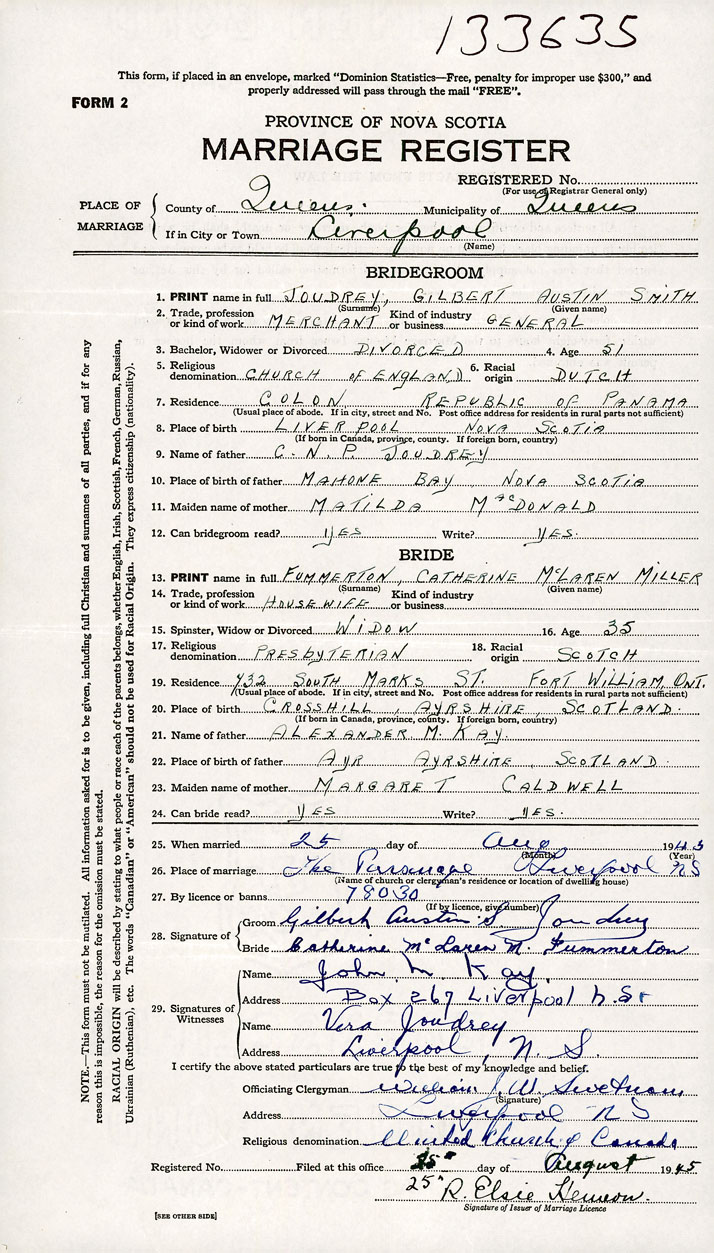 133635
This form, if placed in an envelope, marked "Dominion Statistics—Free, penalty for improper use $300," and
properly addressed will pass through the mail "FREE".
FORM 2
PROVINCE OF NOVA SCOTIA
MARRIAGE REGISTER
REGISTERED No.
(For use of Registrar General only)
PLACE OF MARRIAGE
County of Queens. Municipality of Queens
If in City or Town Liverpool
(Name)
BRIDEGROOM
1. PRINT name in full JOUDREY, GILBERT AUSTIN SMITH
(Surname) (Given name)
2. Trade, profession or kind of work MERCHANT Kind of industry or business GENERAL
3. Bachelor, Widower or Divorced DIVORCED 4. Age 51
5. Religious denomination CHURCH OF ENGLAND 6. Racial origin DUTCH
7. Residence COLON, REPUBLIC OF PANAMA
(Usual place of abode. If in city, street and No. Post office address for residents in rural parts not sufficient)
8. Place of birth LIVERPOOL NOVA SCOTIA
(If born in Canada, province, county. If foreign born, country)
9. Name of father C. N. P. JOUDREY
10. Place of birth of father MAHONE BAY, NOVA SCOTIA
11. Maiden name of mother MATILDA MacDONALD
12. Can bridegroom read? YES Write? YES.
BRIDE
13. PRINT name in full FUMMERTON, CATHERINE McLAREN MILLER
(Surname) (Given name)
14. Trade, profession or kind of work HOUSEWIFE Kind of industry or business
15. Spinster, Widow or Divorced WIDOW 16. Age 35
17. Religious denomination PRESBYTERIAN 18. Racial origin SCOTCH
19. Residence 432 SOUTH MARKS ST. FORT WILLIAM, ONT.
(Usual place of abode. If in city, street and No. Post office address for residents in rural parts not sufficient)
20. Place of birth CROSSHILL, AYRSHIRE, SCOTLAND.
(If born in Canada, province, county. If foreign born, country)
21. Name of father ALEXANDER M. KAY.
22. Place of birth of father AYR AYRSHIRE, SCOTLAND.
23. Maiden name of mother MARGARET CALDWELL
24. Can bride read? YES Write? YES.
25. When married 25 day of Aug 1945
(Month) (Year)
26. Place of marriage The Parsonage Liverpool NS
(Name of church or clergyman's residence or location of dwelling house)
27. By licence or banns 78030
(If by licence, give number)
28. Signature of
Groom Gilbert Austin S Joudrey
Bride Catherine McLaren M. Fummerton
29. Signatures of Witnesses
Name John M Kay.
Address Box 267 Liverpool N.S.
Name Vera Joudrey
Address Liverpool, N. S.
I certify the above stated particulars are true to the best of my knowledge and belief.
Officiating Clergyman William J. W. Swetnam
(Signature)
Address Liverpool NS
Religious denomination United Church of Canada
Registered No. Filed at this office 25" day of August 1945
25" R. Elsie
Signature of Issuer of Marriage Licence
[SEE OTHER SIDE]
NOTE.—This form must not be mutilated. All information asked for is to be given, including full Christian and surnames of all parties, and if for any
reason this is impossible, the reason for the omission must be stated.
RACIAL ORIGIN will be described by stating to what people or race each of the parents belongs, whether English, Irish, Scottish, French, German, Russian,
Ukrainian (Ruthenian), etc. The words "Canadian" or "American" should not be used for Racial Origin. They express citizenship (nationality).